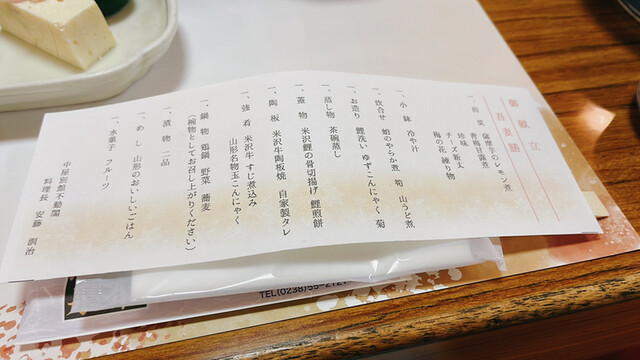 御献立
吾妻膳
一、前菜 薩摩芋のレモン煮
青梅甘露煮
珍味
チーズ新丈
梅の花 練り物
一、小鉢 冷や汁
一、炊合せ 蛸のやらか煮 筍 山うど煮
一、お造り 鯉洗い ゆずこんにゃく 菊
一、蒸し物 茶碗蒸し
一、蓋物 米沢鯉の骨切揚げ 鯉煎餅
一、陶板 米沢牛陶板焼 自家製タレ
一、強肴 米沢牛すじ煮込み
山形名物玉こんにゃく
一、鍋物 鶏鍋 野菜 蕎麦
(椀物としてお召し上がりください)
一、漬物 二品
一、めし 山形のおいしいごはん
一、水菓子 フルーツ
中屋別館不動閣
料理長 安藤 訓治
TEL(0238)55-2121